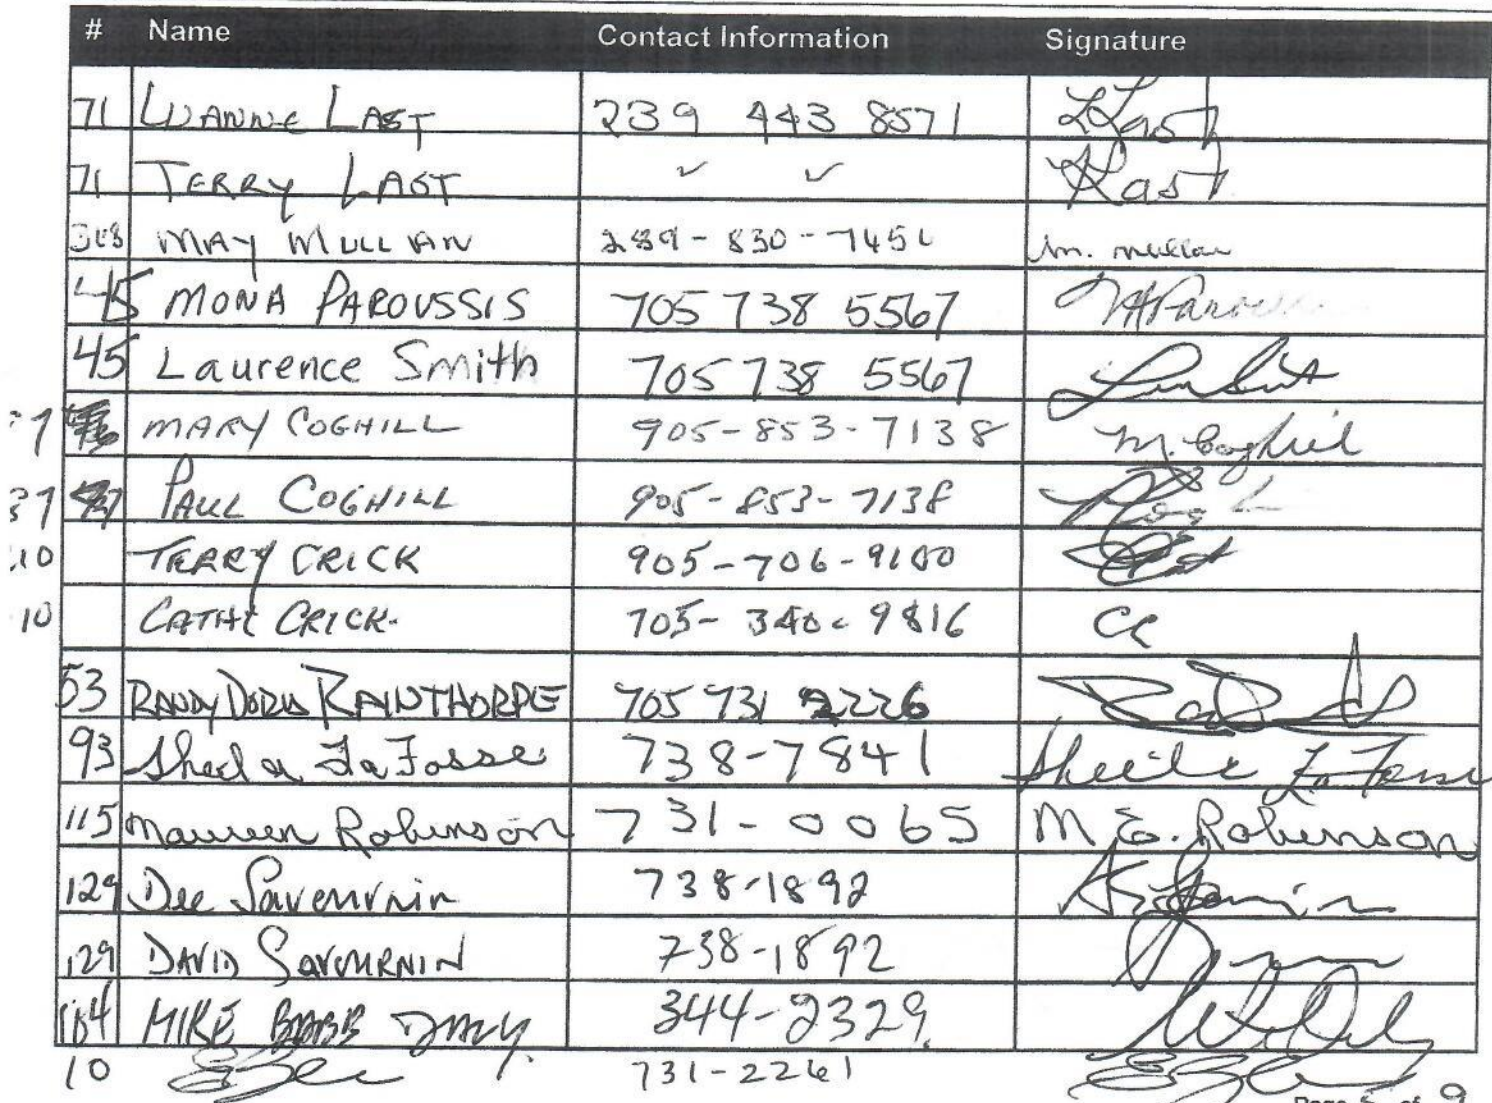 # Name Contact Information Signature
71 LUANNE LAST 239 443 8571 LLast
71 TERRY LAST ✓ ✓ Last
MAY MULLAN 289-830-7451 m. mullan
45 MONA PAROUSSIS 705 738 5567
45 Laurence Smith 705 738 5567
MARY COGHILL 905-853-7138 M. Coghill
37 PAUL COGHILL 905-853-7138
10 TERRY CRICK 905-706-9100
10 CATHI CRICK. 705-340-9816 CC
53 RANDY DORIS RAINTHORPE 705 731 2226
93 Sheila LaFosse 738-7841 Sheila LaFosse
115 Maureen Robinson 731-0065 M. E. Robinson
129 Dee Savournin 738-1892
129 DAVID SAVOURNIN 738-1892
164 MIKE DALY. 344-2329.
10 731-2261
Page 5 of 9